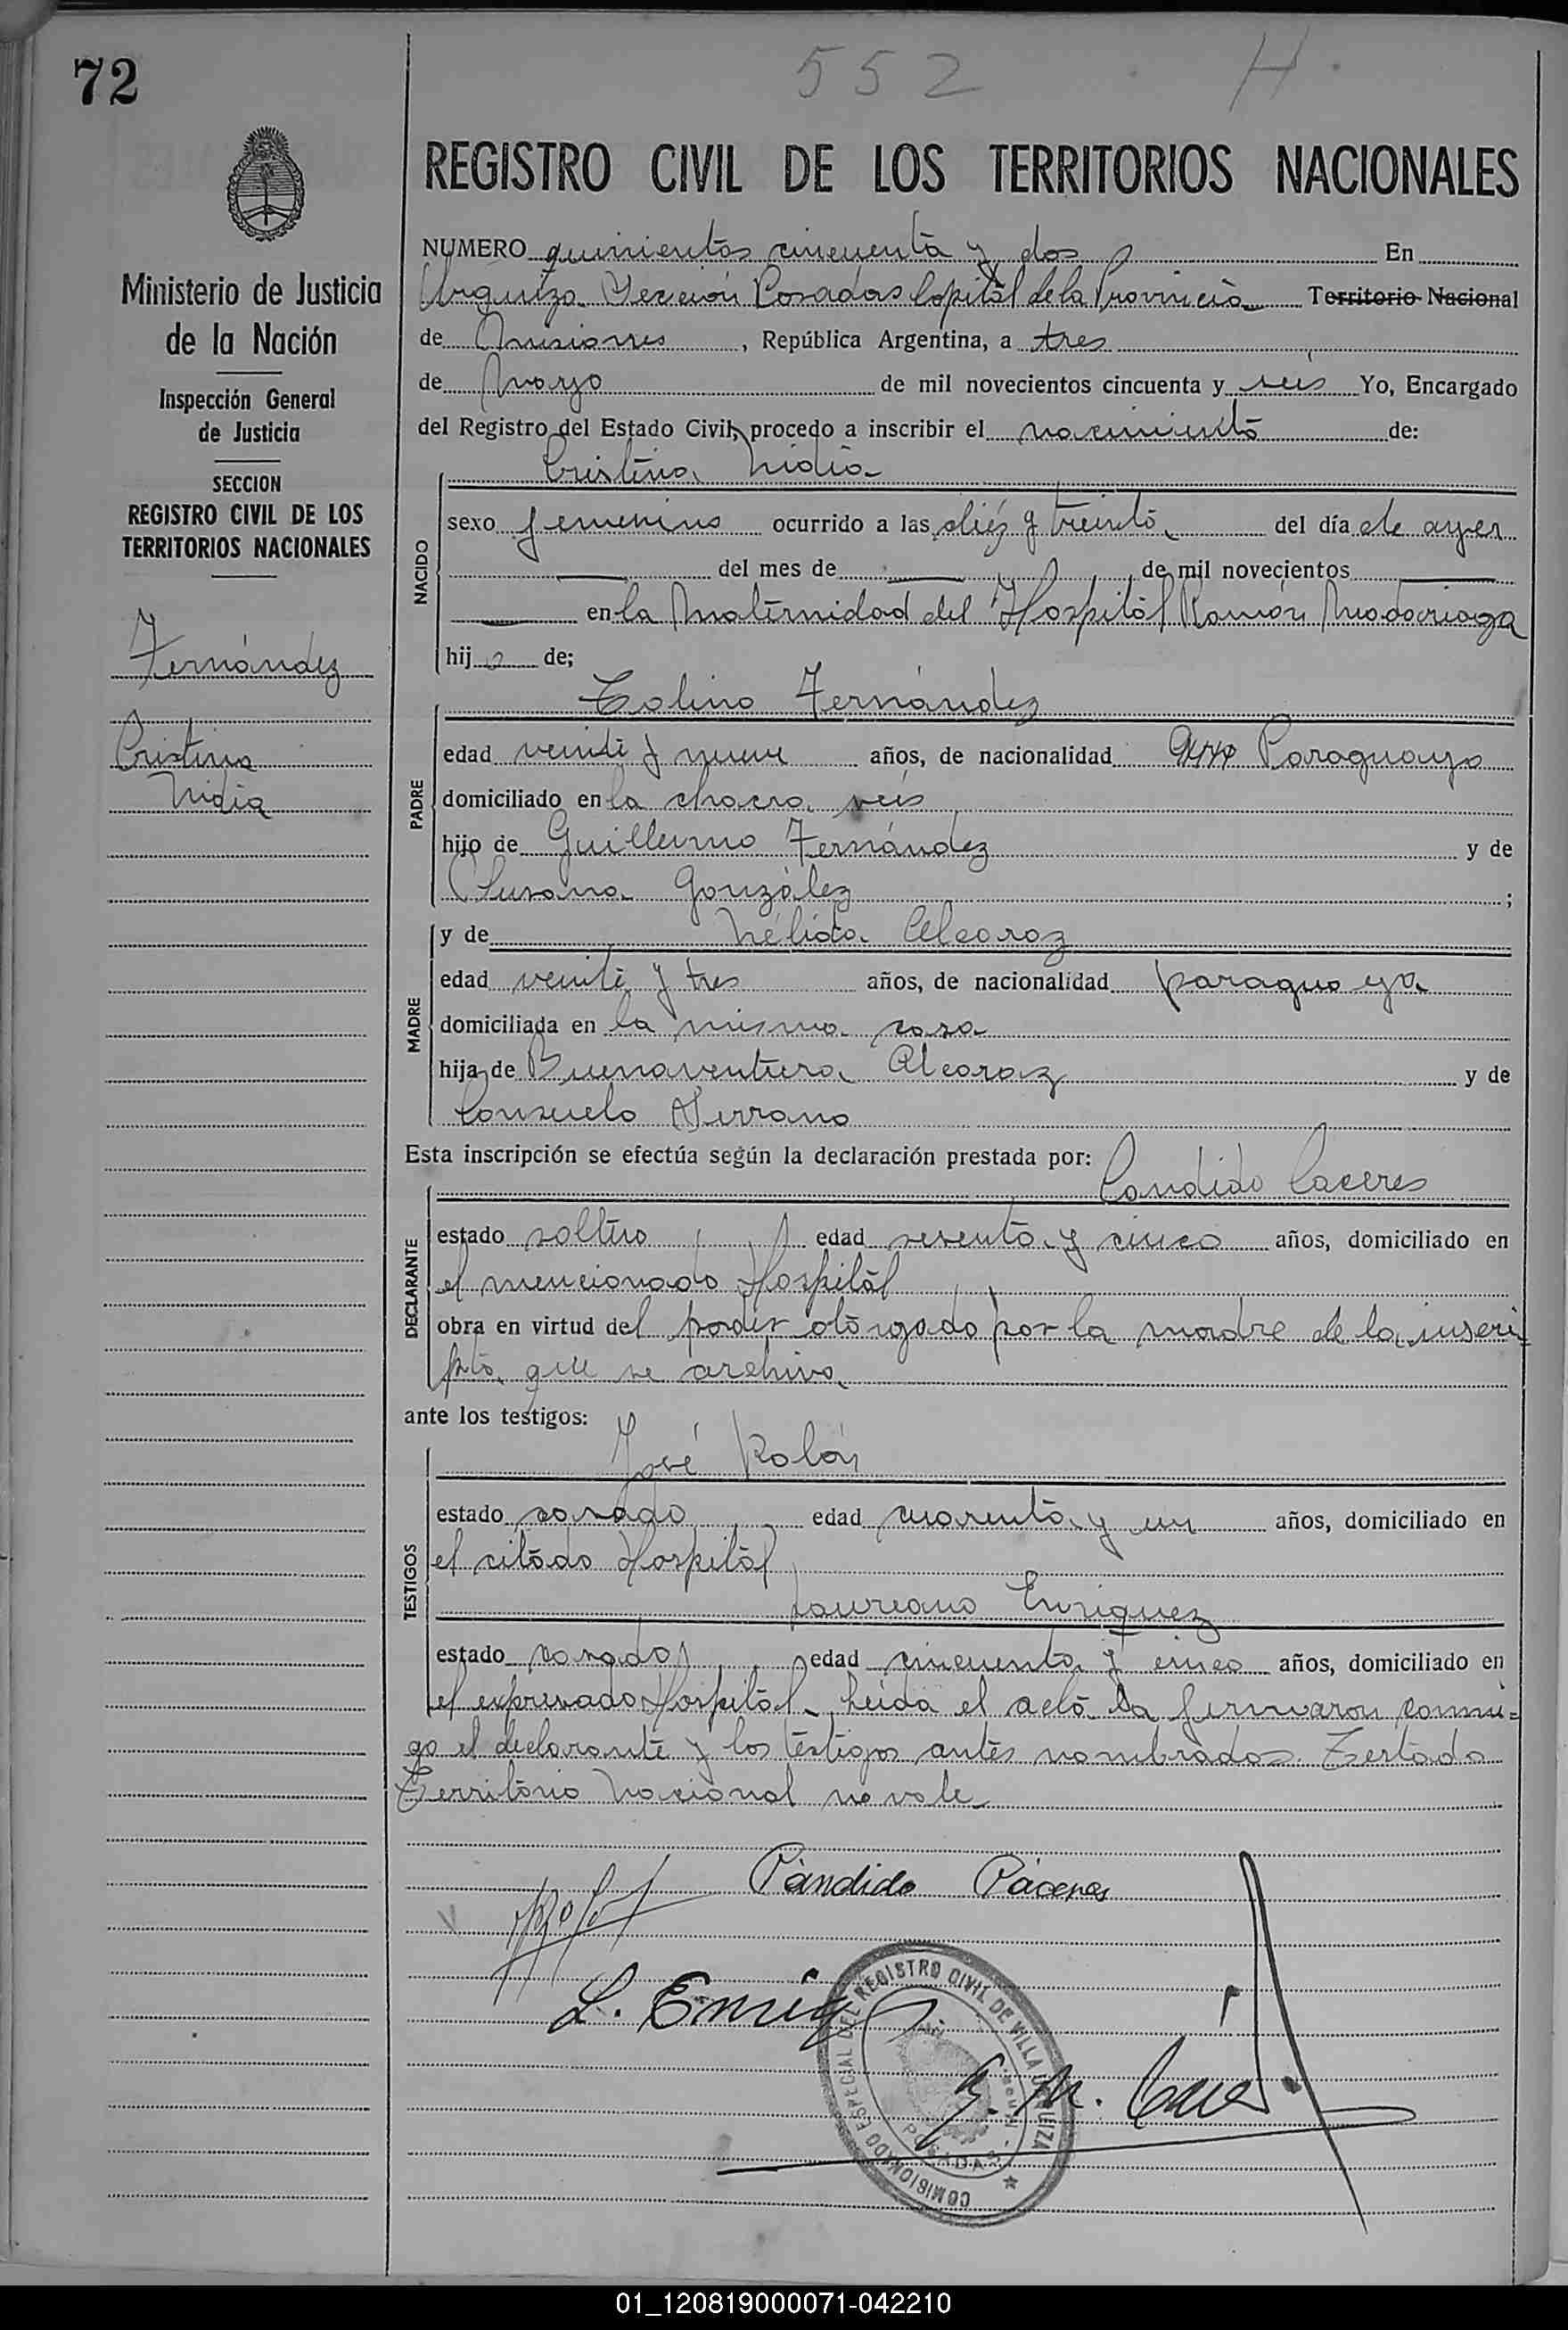 72
552 H.
REGISTRO CIVIL DE LOS TERRITORIOS NACIONALES
Ministerio de Justicia
de la Nación
Inspección General
de Justicia
SECCION
REGISTRO CIVIL DE LOS
TERRITORIOS NACIONALES
Fernández
Cristina
Nidia
NUMERO quinientos cincuenta y dos En
Urquiza Sección Posadas Capital de la Provincia Territorio Nacional
de Misiones, República Argentina, a tres
de Marzo de mil novecientos cincuenta y seis Yo, Encargado
del Registro del Estado Civil, procedo a inscribir el nacimiento de:
Cristina Nidia
NACIDO
sexo femenino ocurrido a las diéz y treinta del día de ayer
del mes de de mil novecientos
en la Maternidad del Hospital Ramón Madariaga
hija de;
PADRE
Fernández
edad veinte y nueve años, de nacionalidad Paraguaya
domiciliado en la chacra seis
hijo de Guillermo Fernández y de
Susana González ;
MADRE
y de Nélida Alcaraz
edad veinte y tres años, de nacionalidad paraguaya
domiciliada en la misma casa
hija de Buenaventura Alcaraz y de
Consuelo Serrano
Esta inscripción se efectúa según la declaración prestada por:
Candido Caceres
DECLARANTE
estado soltero edad sesenta y cinco años, domiciliado en
el mencionado Hospital
obra en virtud del poder otorgado por la madre de la inscri-
pta que se archiva
ante los testigos:
José Rolón
TESTIGOS
estado casado edad cuarenta y un años, domiciliado en
el citado Hospital
Laureano Enriquez
estado casado edad cincuenta y cinco años, domiciliado en
el expresado Hospital. Leida el acta la firmaron conmi=
go el declarante y los testigos antes nombrados. Testado
Territorio Nacional no vale
Cándido Cáceres
L. Enriq
COMISIONADO ESPECIAL DEL REGISTRO CIVIL DE VILLA URQUIZA
POSADAS
01_120819000071-042210